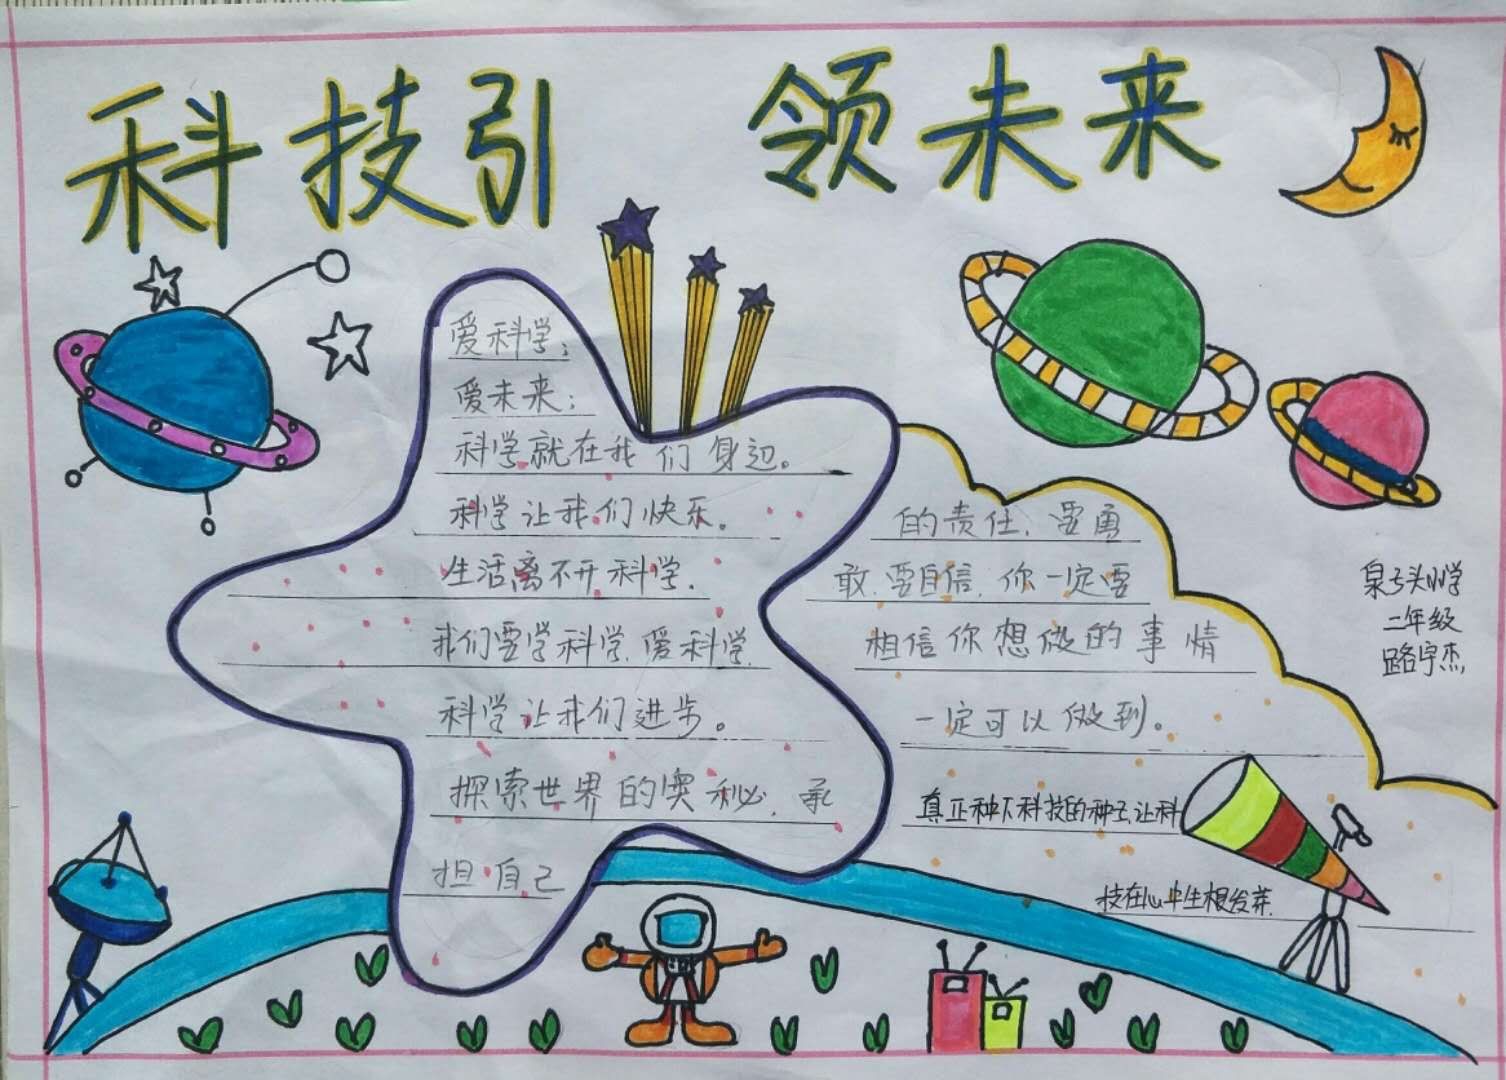 科技引领未来
爱科学；
爱未来；
科学就在我们身边。
科学让我们快乐。
生活离不开科学.
我们要学科学.爱科学.
科学让我们进步。
探索世界的奥秘.承
担自己
的责任.要勇
敢.要自信.你一定要
相信你想做的事情
一定可以做到。
真正种下科技的种子.让科
技在心中生根发芽.
泉子头小学
二年级
路宇杰